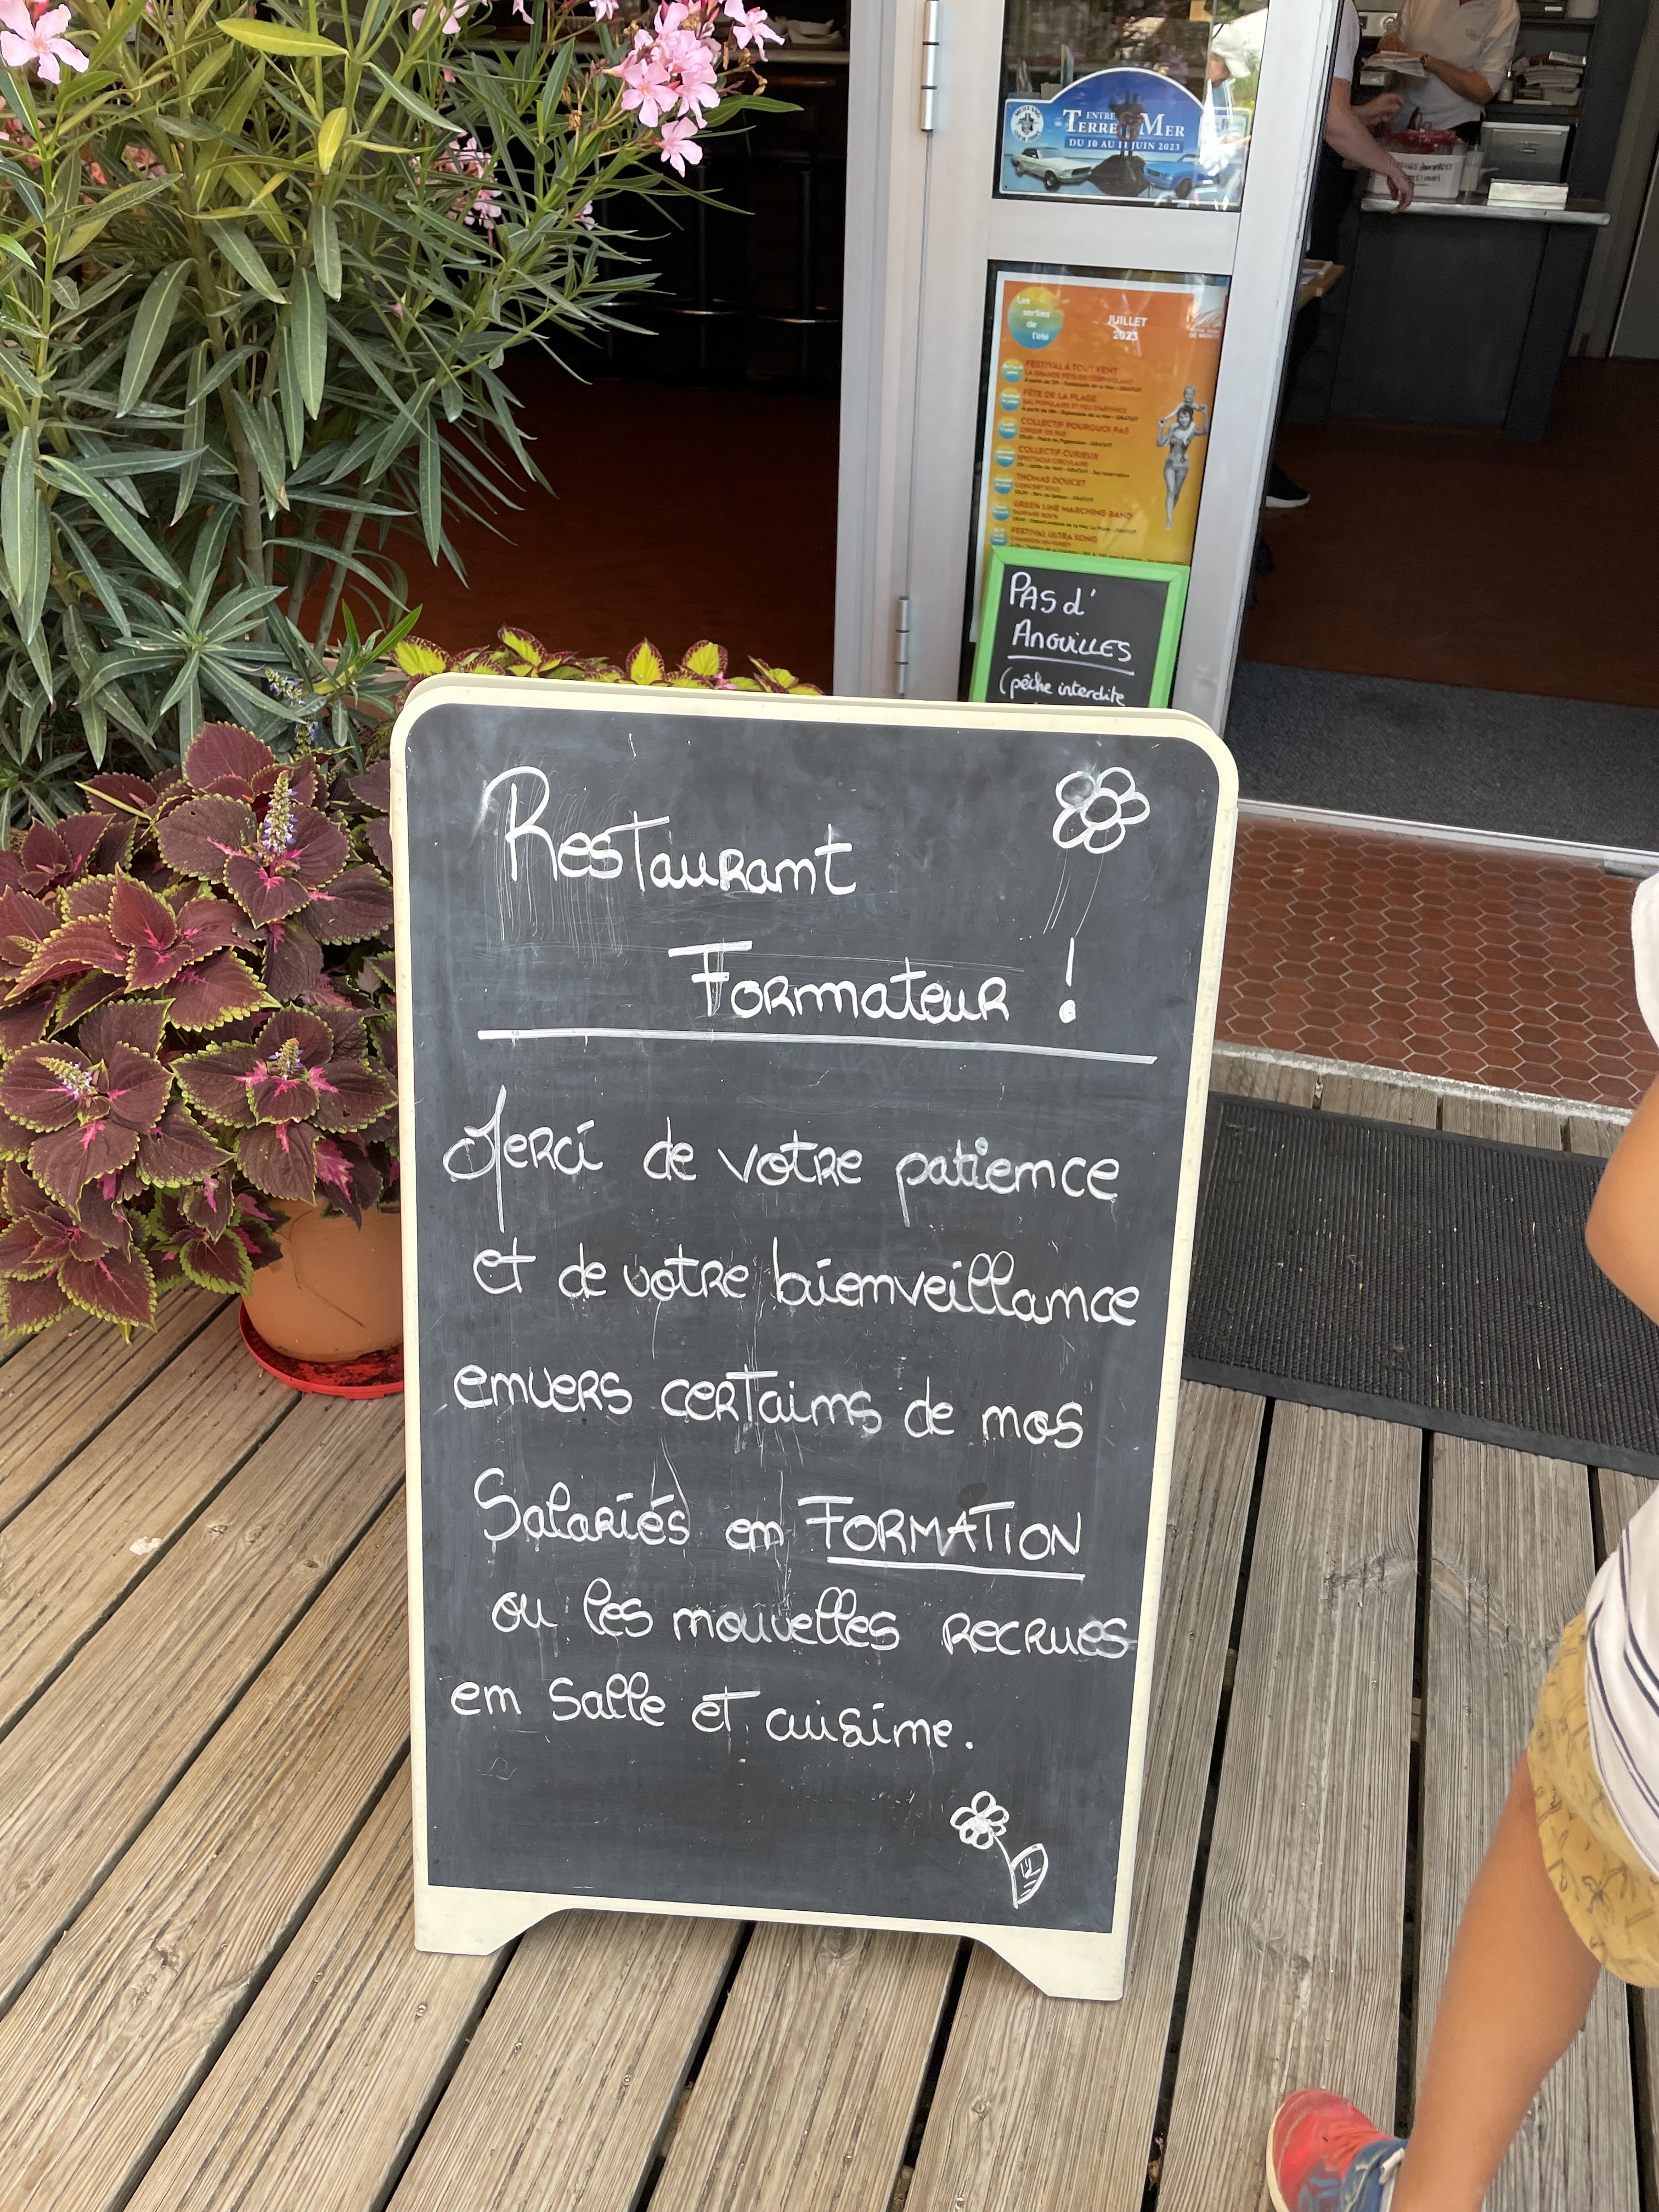 ENTRE
TERRE & MER
DU 10 AU 11 JUIN 2023
Les
sorties
de
l'été
JUILLET
2023
FESTIVAL À TOUT VENT
LA GRANDE FÊTE DU CERF-VOLANT
FÊTE DE LA PLAGE
BAL POPULAIRE ET FEU D'ARTIFICE
COLLECTIF POURQUOI PAS
CIRQUE DE RUE
COLLECTIF CURIEUX
SPECTACLE CIRCULAIRE
THOMAS DOUCET
GREEN LINE MARCHING BAND
FESTIVAL ULTRA SOND
PAS d'
ANGUILLES
(pêche interdite
Restaurant
Formateur !
Merci de votre patience
et de votre bienveillance
envers certains de nos
Salariés en FORMATION
ou les nouvelles recrues
en Salle et cuisine.